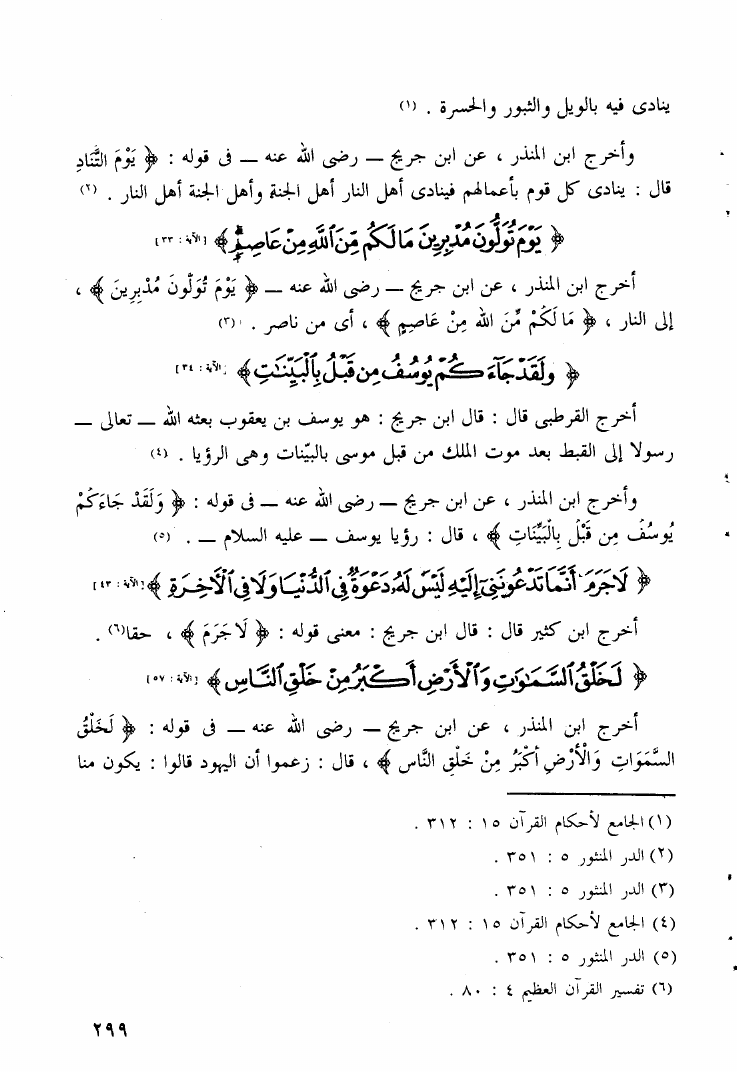 ينادى فيه بالويل والثبور والحسرة . (١)
وأخرج ابن المنذر ، عن ابن جريج – رضى الله عنه – فى قوله : ﴿ يَوْمَ التَّنَادِ
قال : ينادى كل قوم بأعمالهم فينادى أهل النار أهل الجنة وأهل الجنة أهل النار . (٢)
﴿ يَوْمَ تُوَلُّونَ مُدْبِرِينَ مَا لَكُم مِّنَ ٱللَّهِ مِنْ عَاصِمٍ ﴾ [الآية : ٣٣]
أخرج ابن المنذر ، عن ابن جريج – رضى الله عنه – ﴿ يَوْمَ تُوَلُّونَ مُدْبِرِينَ ﴾ ،
إلى النار ، ﴿ مَا لَكُمْ مِّنَ الله مِنْ عَاصِمٍ ﴾ ، أى من ناصر . (٣)
﴿ وَلَقَدْ جَآءَكُمْ يُوسُفُ مِن قَبْلُ بِٱلْبَيِّنَٰتِ ﴾ [الآية : ٣٤]
أخرج القرطبى قال : قال ابن جريج : هو يوسف بن يعقوب بعثه الله – تعالى –
رسولا إلى القبط بعد موت الملك من قبل موسى بالبيّنات وهى الرؤيا . (٤)
وأخرج ابن المنذر ، عن ابن جريج – رضى الله عنه – فى قوله : ﴿ وَلَقَدْ جَاءَكُمْ
يُوسُفُ مِن قَبْلُ بِالْبَيِّنَاتِ ﴾ ، قال : رؤيا يوسف – عليه السلام – . (٥)
﴿ لَا جَرَمَ أَنَّمَا تَدْعُونَنِىٓ إِلَيْهِ لَيْسَ لَهُۥ دَعْوَةٌ فِى ٱلدُّنْيَا وَلَا فِى ٱلْأَخِرَةِ ﴾ [الآية : ٤٣]
أخرج ابن كثير قال : قال ابن جريج : معنى قوله : ﴿ لَا جَرَمَ ﴾ ، حقا(٦) .
﴿ لَخَلْقُ ٱلسَّمَٰوَٰتِ وَٱلْأَرْضِ أَكْبَرُ مِنْ خَلْقِ ٱلنَّاسِ ﴾ [الآية : ٥٧]
أخرج ابن المنذر ، عن ابن جريج – رضى الله عنه – فى قوله : ﴿ لَخَلْقُ
السَّمَوَاتِ وَالْأَرْضِ أَكْبَرُ مِنْ خَلْقِ النَّاس ﴾ ، قال : زعموا أن اليهود قالوا : يكون منا
(١) الجامع لأحكام القرآن ١٥ : ٣١٢ .
(٢) الدر المنثور ٥ : ٣٥١ .
(٣) الدر المنثور ٥ : ٣٥١ .
(٤) الجامع لأحكام القرآن ١٥ : ٣١٢ .
(٥) الدر المنثور ٥ : ٣٥١ .
(٦) تفسير القرآن العظيم ٤ : ٨٠ .
٢٩٩